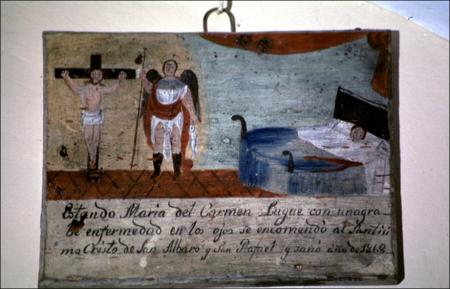 Estando Maria del Carmen Luque con una gra
be enfermedad en los ojos se encomendo al Santisi
mo Cristo de San Albaro y San Rafael y sanó año de 1868